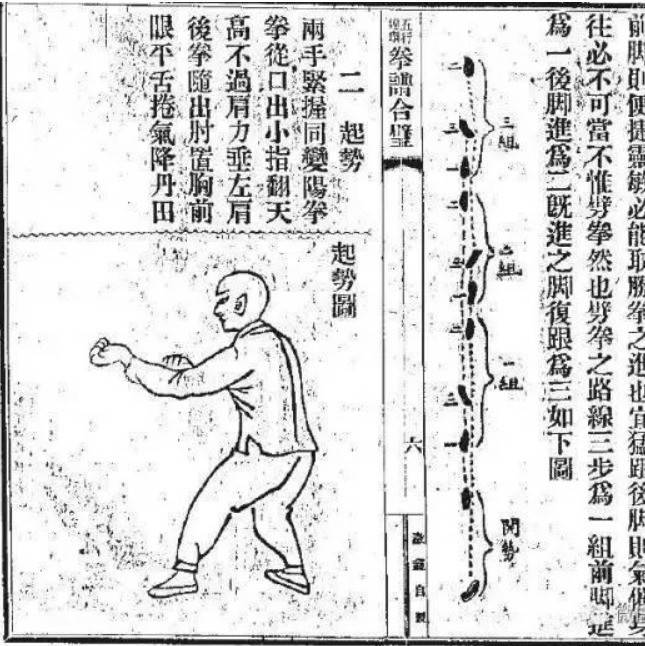 前脚則便捷靈敏必能取勝拳之進也宜猛跟後脚則氣催身
往必不可當不惟劈拳然也劈拳之路線三步爲一組前脚進
爲一後脚進爲二既進之脚復跟爲三如下圖
三組
二組
一組
開勢
二
三
一
二
三
一
二
三
一
五行
連環
拳譜合璧
六
自製
二 起勢
兩手緊握同變陽拳
拳從口出小指翻天
高不過眉力垂左肩
後拳隨出肘置胸前
眼平舌捲氣降丹田
起勢圖